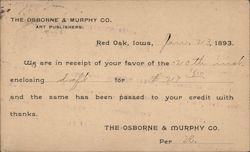 THE OSBORNE & MURPHY CO.
ART PUBLISHERS.
Red Oak, Iowa, Jan. 23, 1893.
We are in receipt of your favor of the 20th inst
enclosing draft for $
and the same has been passed to your credit with
thanks.
THE OSBORNE & MURPHY CO.
Per